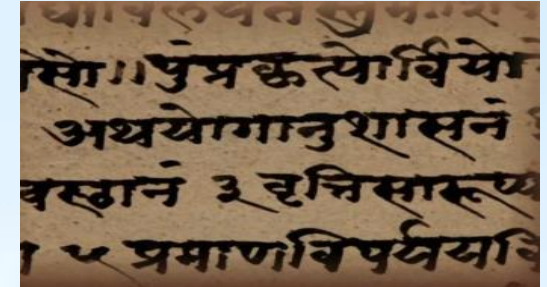 सो॥पुंप्रकृत्योर्वियो
अथयोगानुशासनं
वस्थानं ३ वृत्तिसारूप्य
५ प्रमाणविपर्ययवि